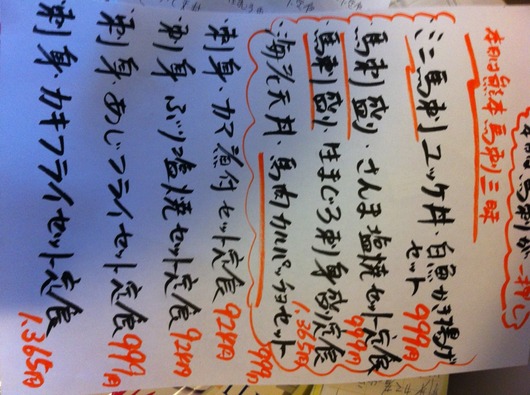 本日は熊本馬刺三昧
ミニ馬刺ユッケ丼・白魚かき揚げ
セット 999円
馬刺盛り・さんま塩焼セット定食 999円
馬刺盛り・生まぐろ刺身盛定食 1,365円
海老天丼・馬肉カルパッチョセット 999円
刺身・カマ煮付セット定食 924円
刺身・ぶり塩焼セット定食 924円
刺身・あじフライセット定食 999円
刺身・カキフライセット定食 1,365円